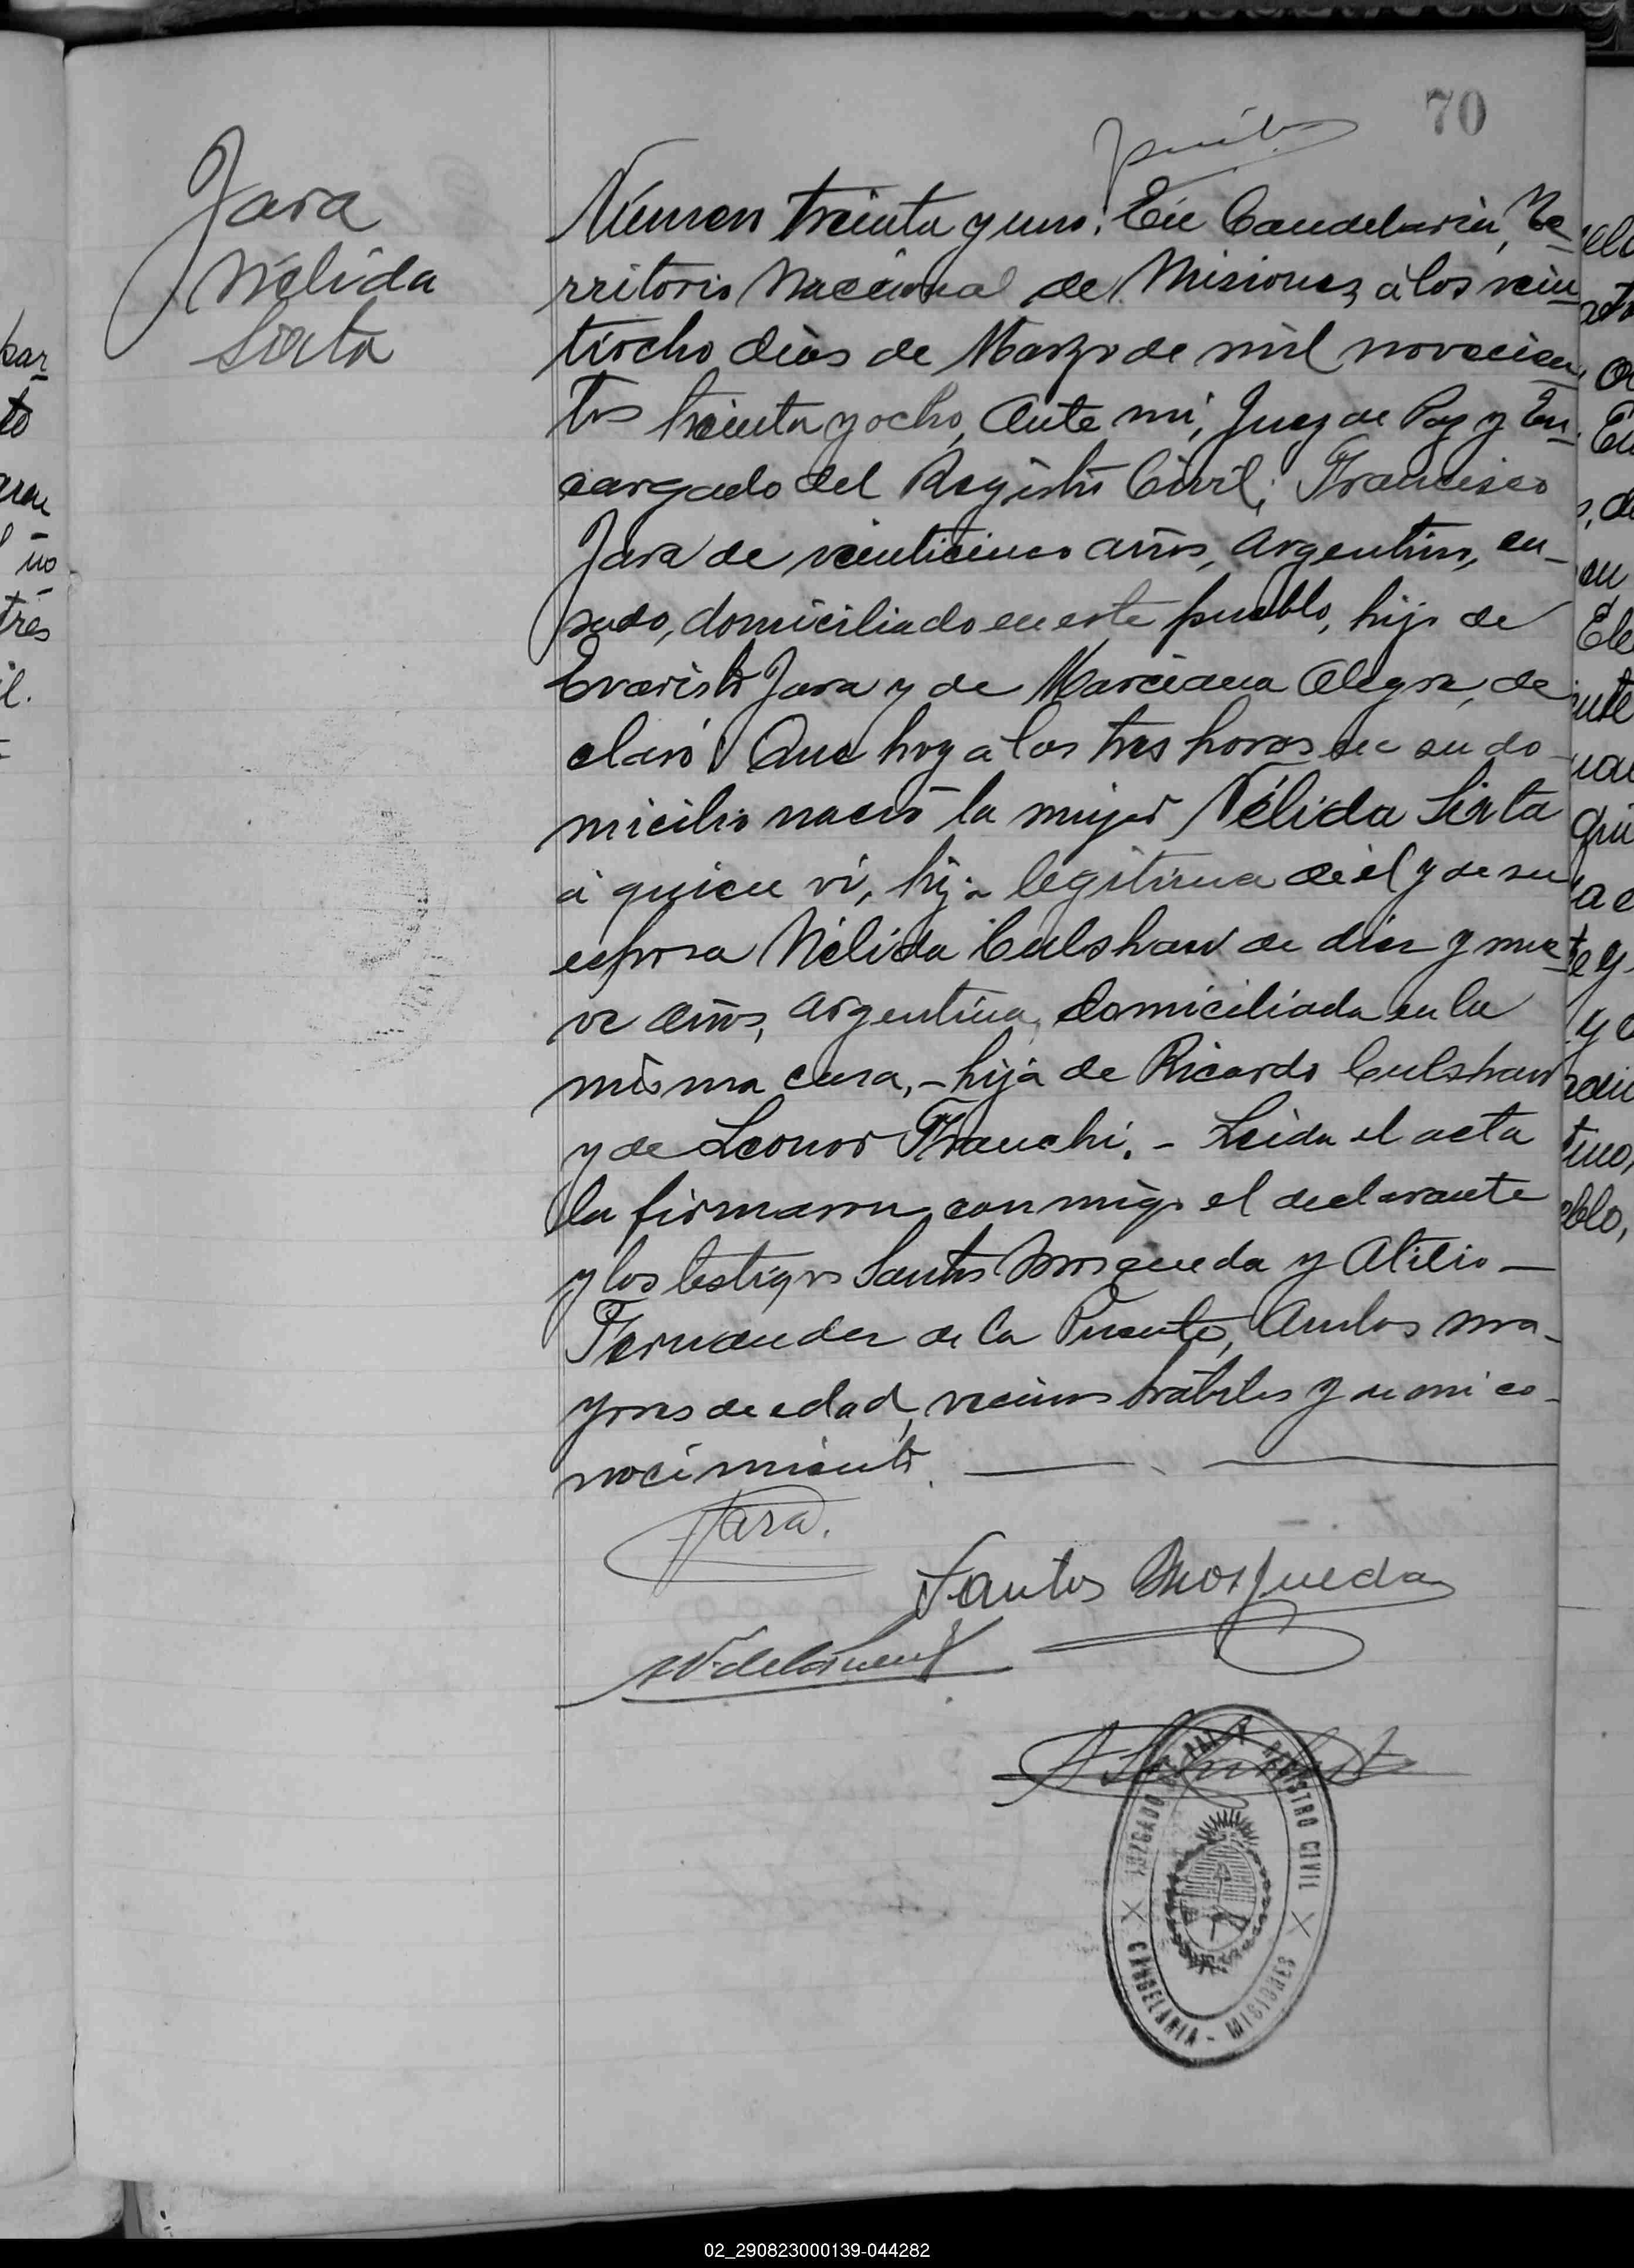 70
Jara
Nélida
Sixta
Número treinta y uno: En Candelaria, Te-
rritorio Nacional de Misiones, á los vein-
tiocho días de Marzo de mil novecien-
tos treinta y ocho, Ante mi, Juez de Paz y En-
cargado del Registro Civil; Francisco
Jara de veinticinco años, Argentino, ca-
sado, domiciliado en este pueblo, hijo de
Evaristo Jara y de Marciana Alegre, de
claró: Que hoy a las tres horas en su do-
micilio nació la mujer Nélida Sixta
á quien vi, hija legítima de él y de su
esposa Nélida Culshaw de diez y nue-
ve años, argentina, domiciliada en la
misma casa, - hija de Ricardo Culshaw
y de Leonor Franchi. - Leida el acta
la firmaron conmigo el declarante
y los testigos Santos Mosqueda y Atilio —
Fernandez de la Puente, Ambos ma-
yores de edad, vecinos hábiles y de mi co-
nocimiento. —
Jara.
Santos Mosqueda
JUZGADO DE PAZ Y REGISTRO CIVIL
CANDELARIA - MISIONES
02_290823000139-044282